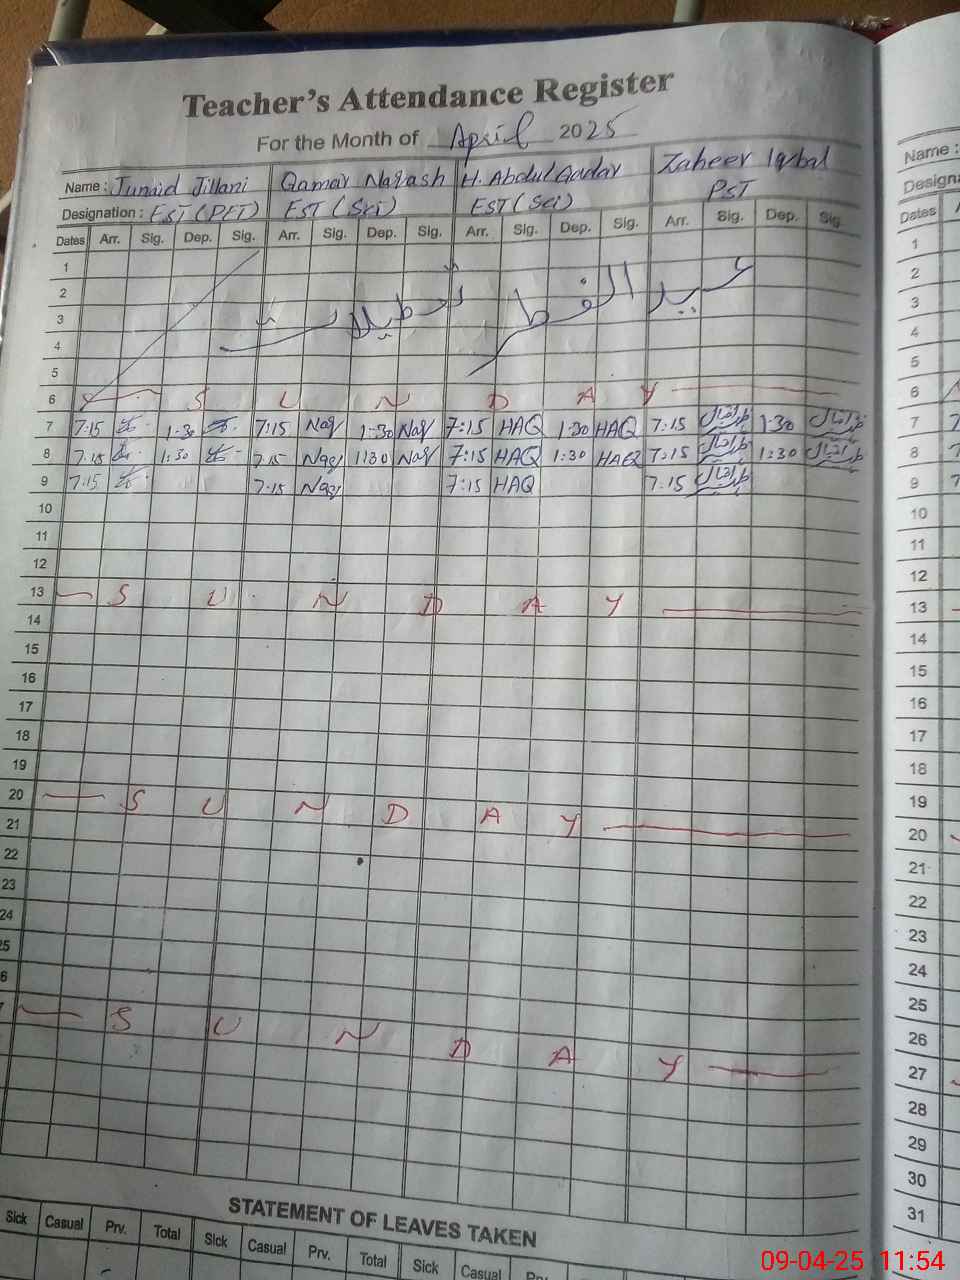 Teacher's Attendance Register
For the Month of April 2025
Name : Junaid Jillani Qamar Naqash H. Abdul Qadar Zaheer Iqbal
Designation : EST (PET) EST (Sci) EST (Sci) PST
Dates Arr. Sig. Dep. Sig. Arr. Sig. Dep. Sig. Arr. Sig. Dep. Sig. Arr. Sig. Dep. Sig.
1
2
عید الفطر
3
تعطیلات
4
5
6 S U N D A Y
7 7:15 1:30 7:15 Naq 1:30 Naq 7:15 HAQ 1:30 HAQ 7:15 1:30
8 7:15 1:30 7:15 Naq 1:30 Naq 7:15 HAQ 1:30 HAQ 7:15 1:30
9 7:15 7:15 Naq 7:15 HAQ 7:15
10
11
12
13 S U N D A Y
14
15
16
17
18
19
20 S U N D A Y
21
22
23
24
5
6
7 S U N D A Y
STATEMENT OF LEAVES TAKEN
Sick Casual Prv. Total Sick Casual Prv. Total Sick Casual Prv.
Name :
Design
Dates
1
2
3
4
5
6
7
8
9
10
11
12
13
14
15
16
17
18
19
20
21
22
23
24
25
26
27
28
29
30
31
09-04-25 11:54